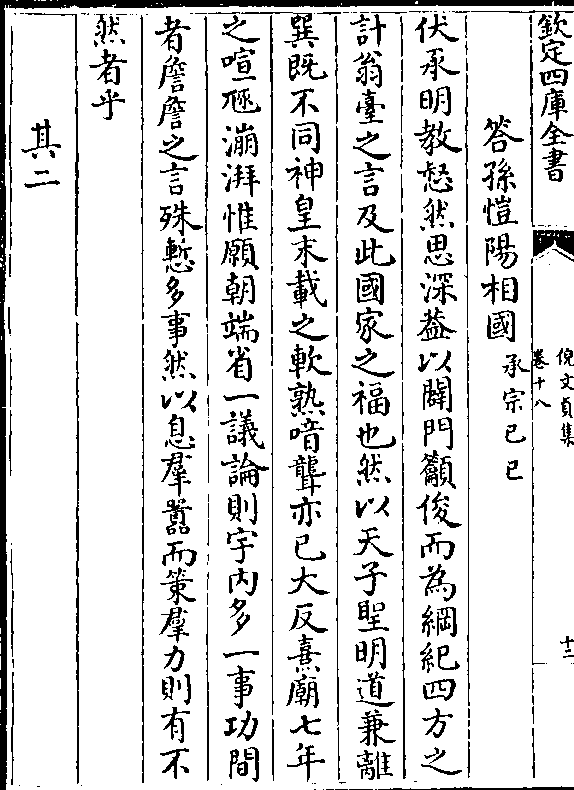 欽定四庫全書
倪文貞集
卷十八
十二
答孫愷陽相國承宗己巳
伏承明教愁然思深葢以闢門籲俊而為綱紀四方之
計翁臺之言及此國家之福也然以天子聖明道兼離
巽既不同神皇末載之軟熟喑聾亦已大反熹廟七年
之喧豗漰湃惟願朝端省一議論則宇内多一事功間
者詹詹之言殊慙多事然以息羣嚚而策羣力則有不
然者乎
其二